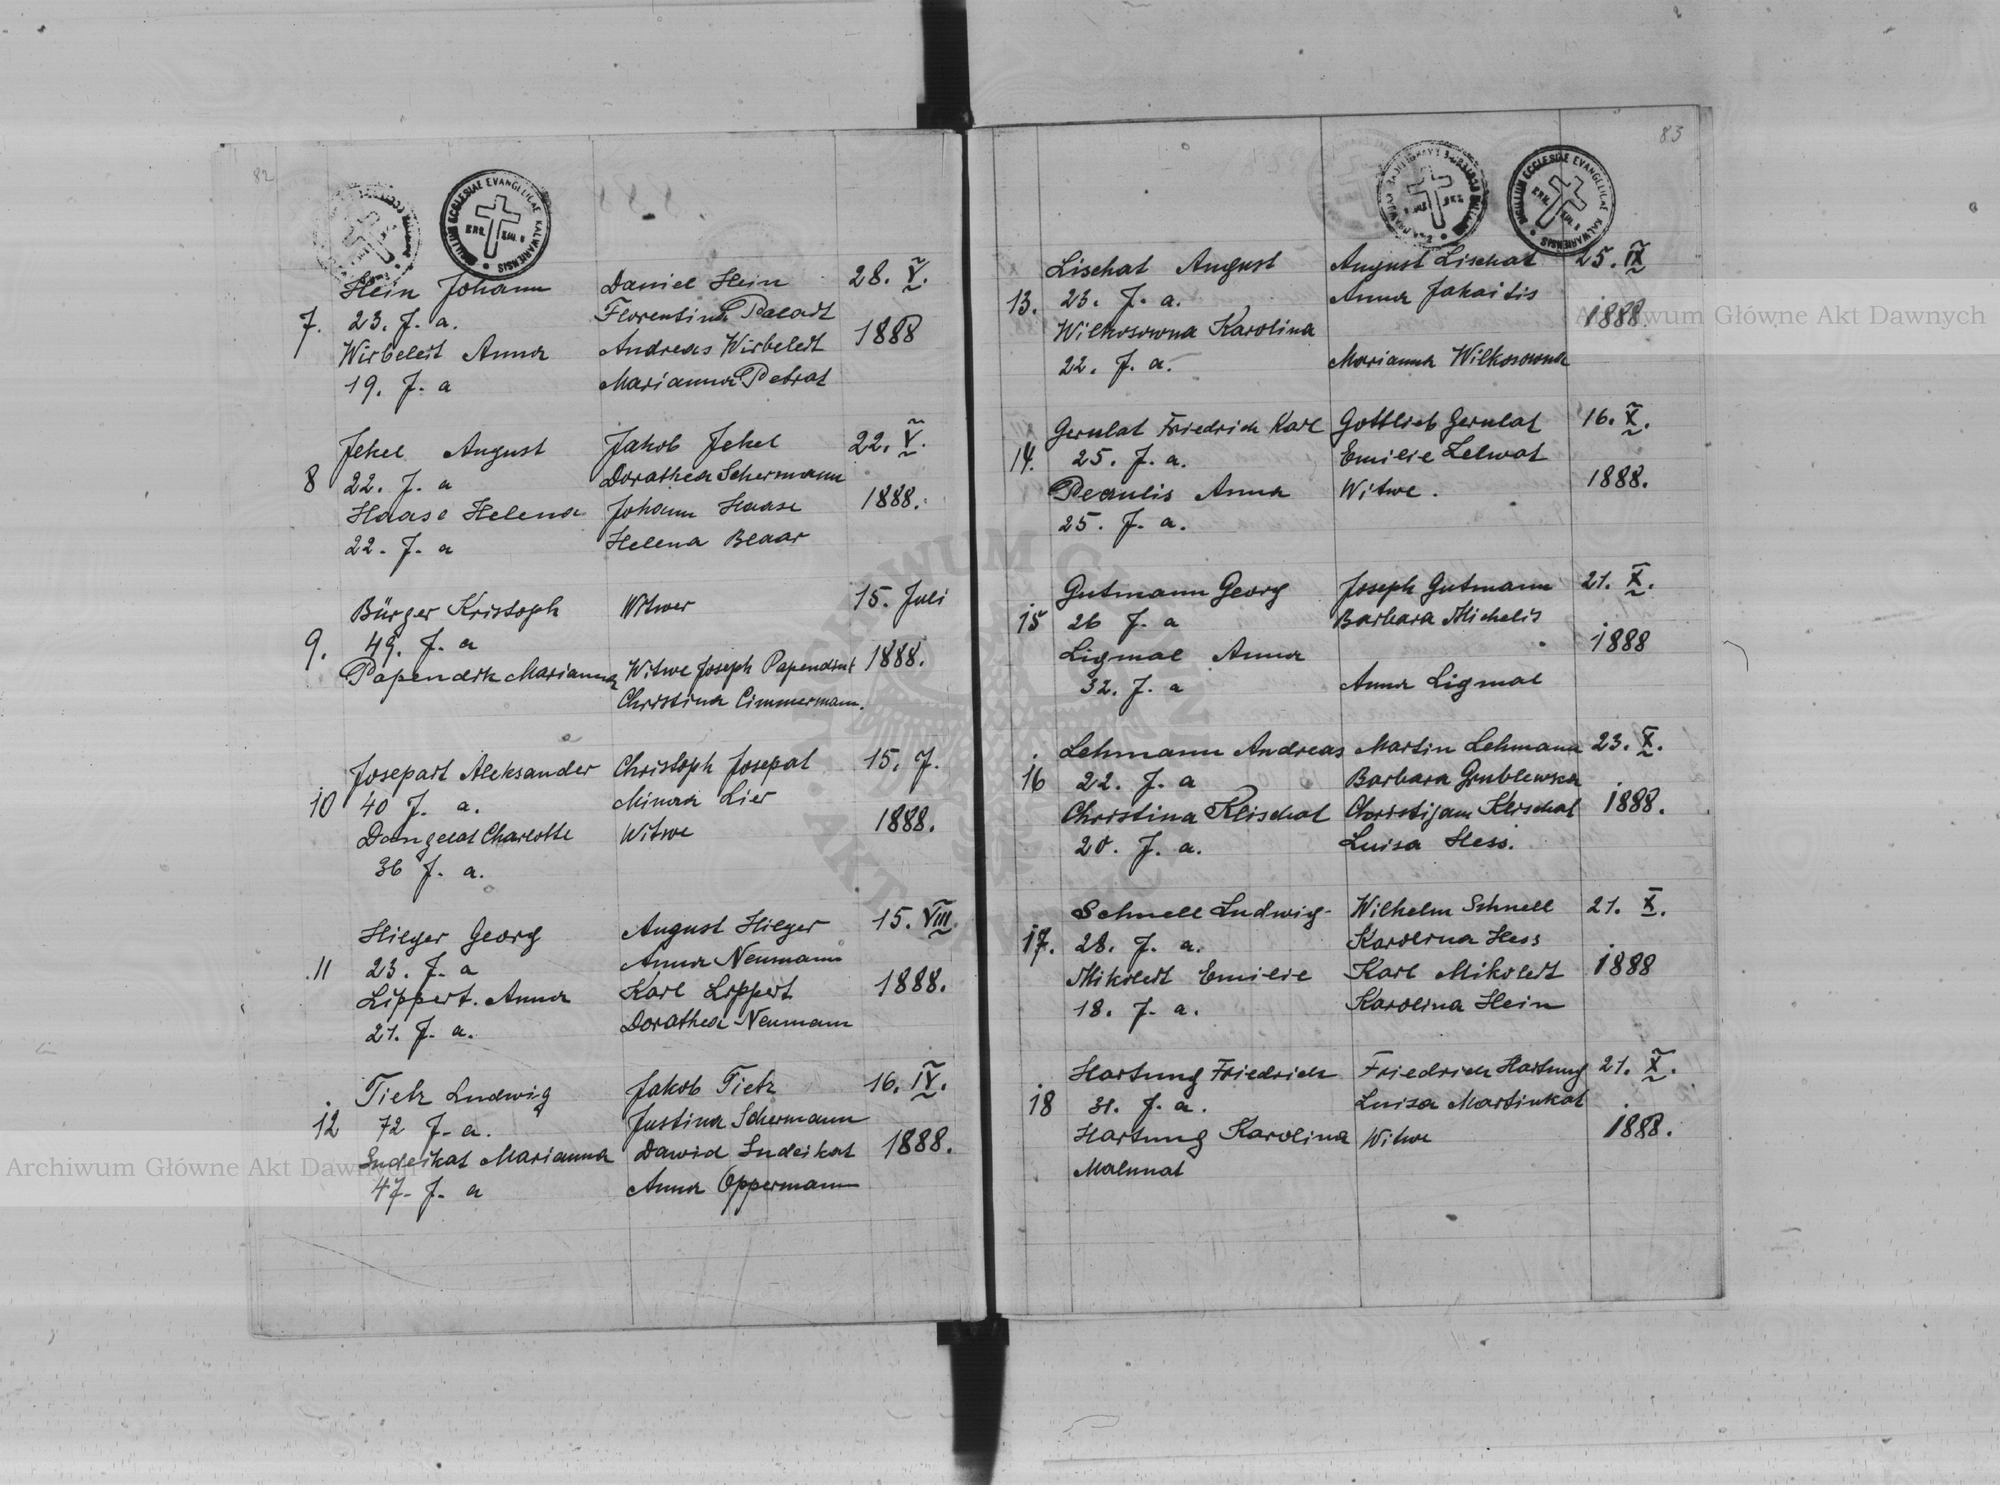 82
SIGILLUM ECCLESIAE EVANGELICAE KALWARIENSIS
Hein Johann Daniel Hein 28. V.
7. 23. J. a. Florentina Paladt 1888
Wirbeleit Anna Andreas Wirbeleit
19. J. a Marianna Petrat
Jekel August Jakob Jekel 22. V.
8 22. J. a Dorathea Schermann
Haase Helena Johann Haase 1888.
22. J. a Helena Blaar
Bürger Kristoph Witwer 15. Juli
9. 49. J. a
Papendik Marianna Witwe Joseph Papendick 1888.
Christina Cimmermann.
Josepart Aleksander Christoph Josepat 15. J.
10 40 J. a. Minna Lier
Dangelat Charlotte Witwe 1888.
36 J. a.
Hilger Georg August Hilger 15. VIII
11 23. J. a Anna Neumann
Lippert. Anna Karl Lippert 1888.
21. J. a. Dorathea Neumann
Tietz Ludwig Jakob Tietz 16. IV.
12 72 J. a. Justina Schermann
Sudeikat Marianna Dawid Sudeikat 1888.
47. J. a Anna Oppermann
83
SIGILLUM ECCLESIAE EVANGELICAE KALWARIENSIS
Lischat August August Lischat 25. IX
13. 23. J. a. Anna Jakaitis
Wilkosowna Karolina 1888.
22. J. a. Marianna Wilkosowna
Gerulat Friedrich Karl Gottlieb Gerulat 16. X.
14. 25. J. a. Emilie Lelwat
Peaulis Anna Witwe. 1888.
25. J. a.
Gutmann Georg Joseph Gutmann 21. X.
15 26 J. a Barbara Michelis
Ligmal Anna 1888
32. J. a Anna Ligmal
Lehmann Andreas Martin Lehmann 23. X.
16 22. J. a Barbara Grublewska
Christina Klischat Christijan Klischat 1888.
20. J. a. Luisa Hess.
Schnell Ludwig Wilhelm Schnell 21. X.
17. 28. J. a. Karolina Hess
Mikoleit Emilie Karl Mikoleit 1888
18. J. a. Karolina Hein
Hartung Friedrich Friedrich Hartung 21. X.
18 31. J. a. Luisa Martinkat
Hartung Karolina Witwe 1888.
Malunat
Archiwum Główne Akt Dawnych
Archiwum Główne Akt Dawnych